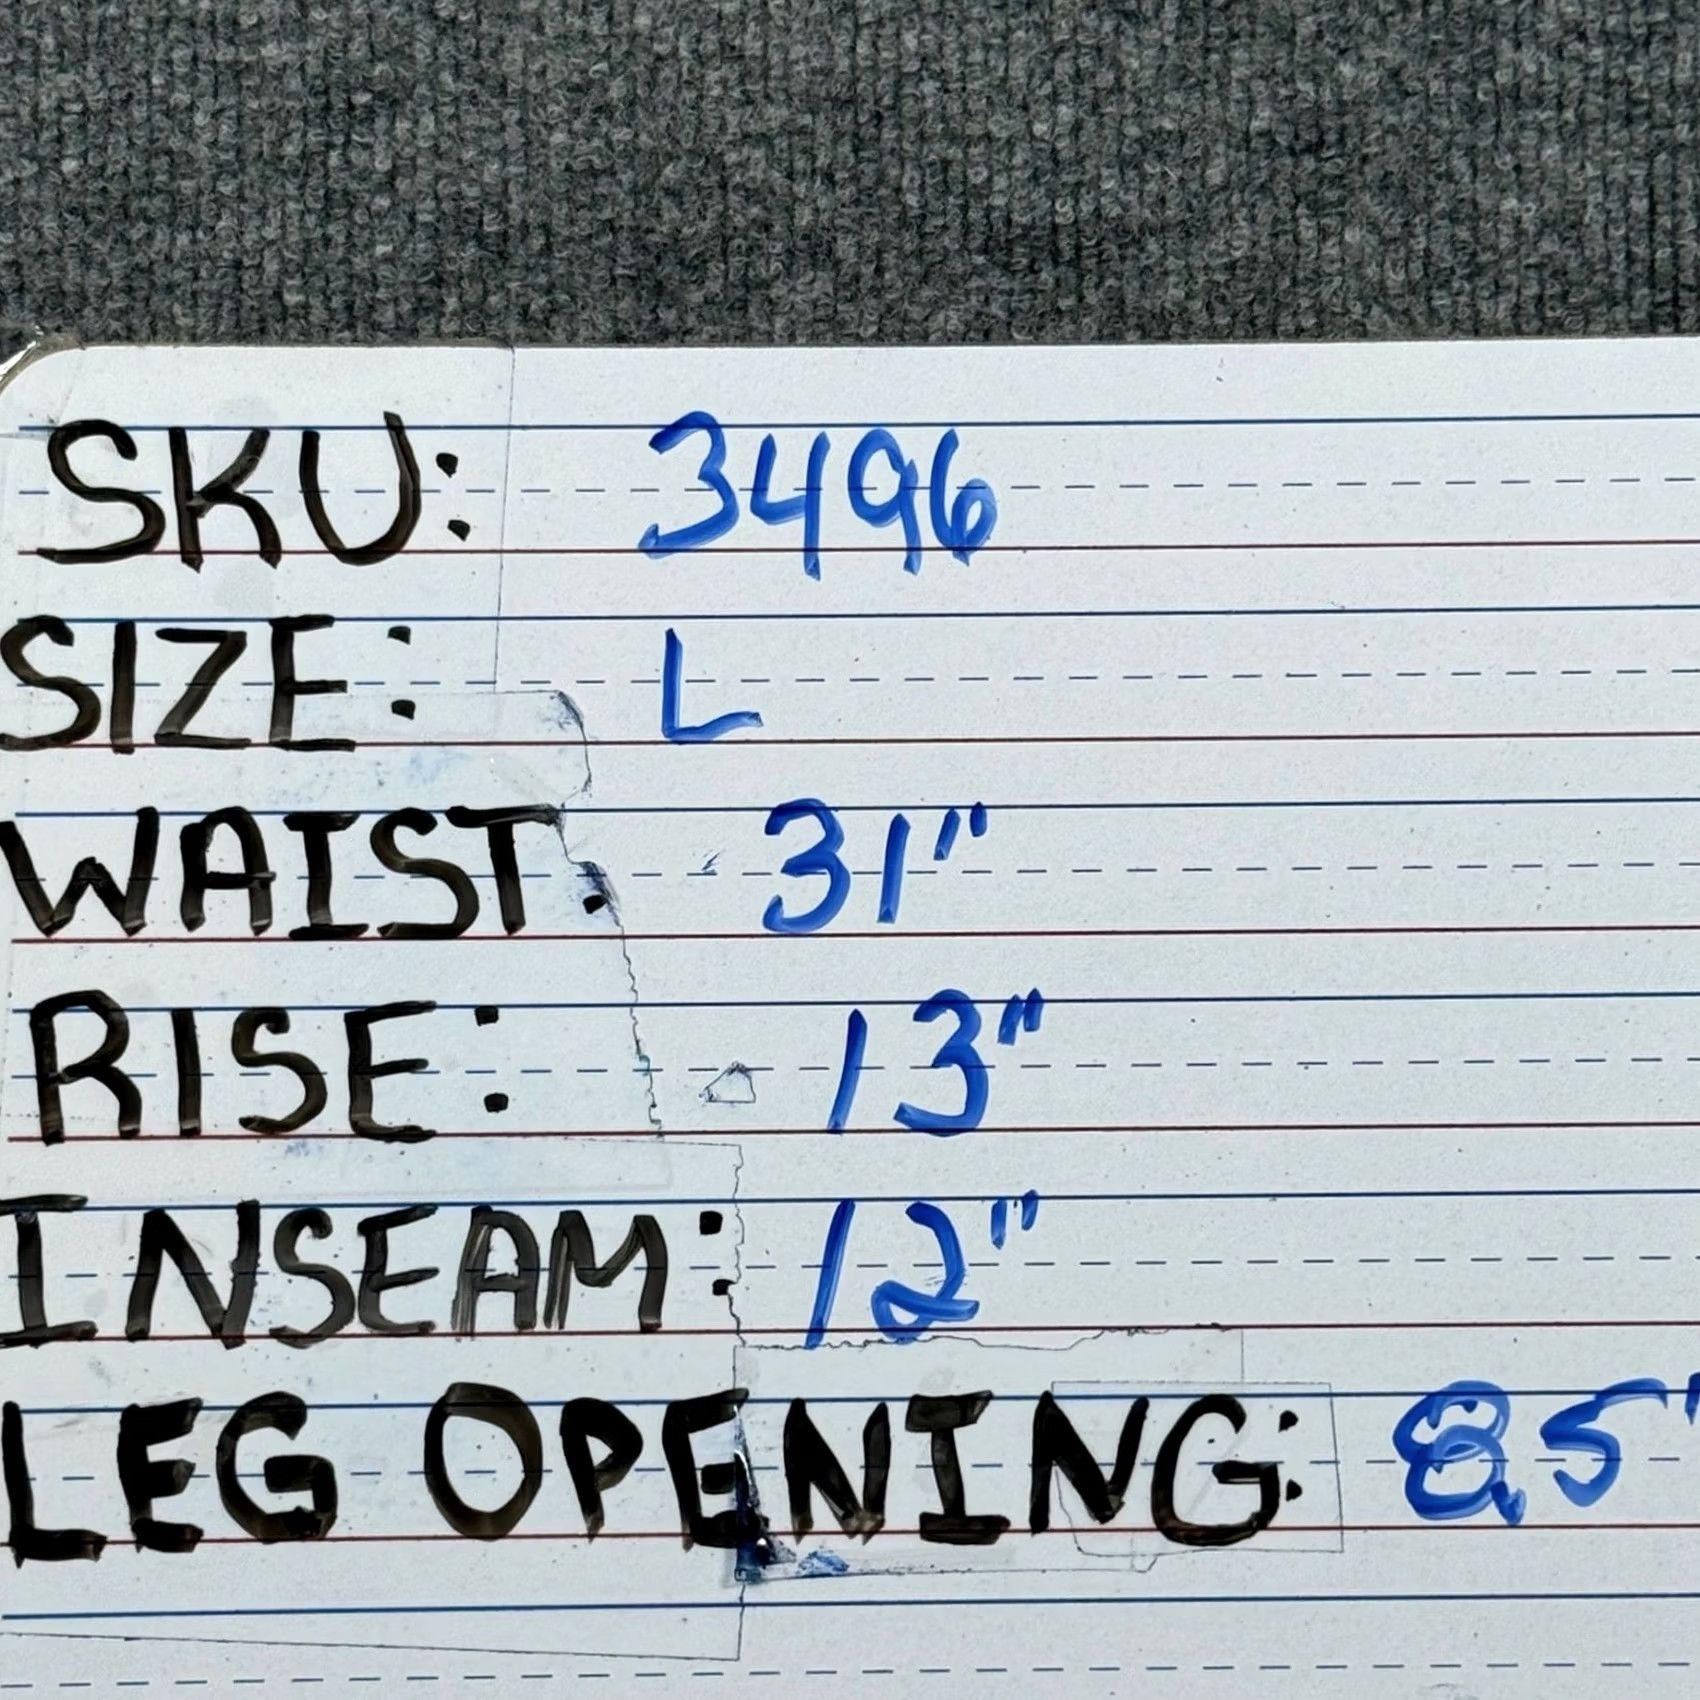 SKU: 3496
SIZE: L
WAIST: 31"
RISE: 13"
INSEAM: 12"
LEG OPENING: 8.5"